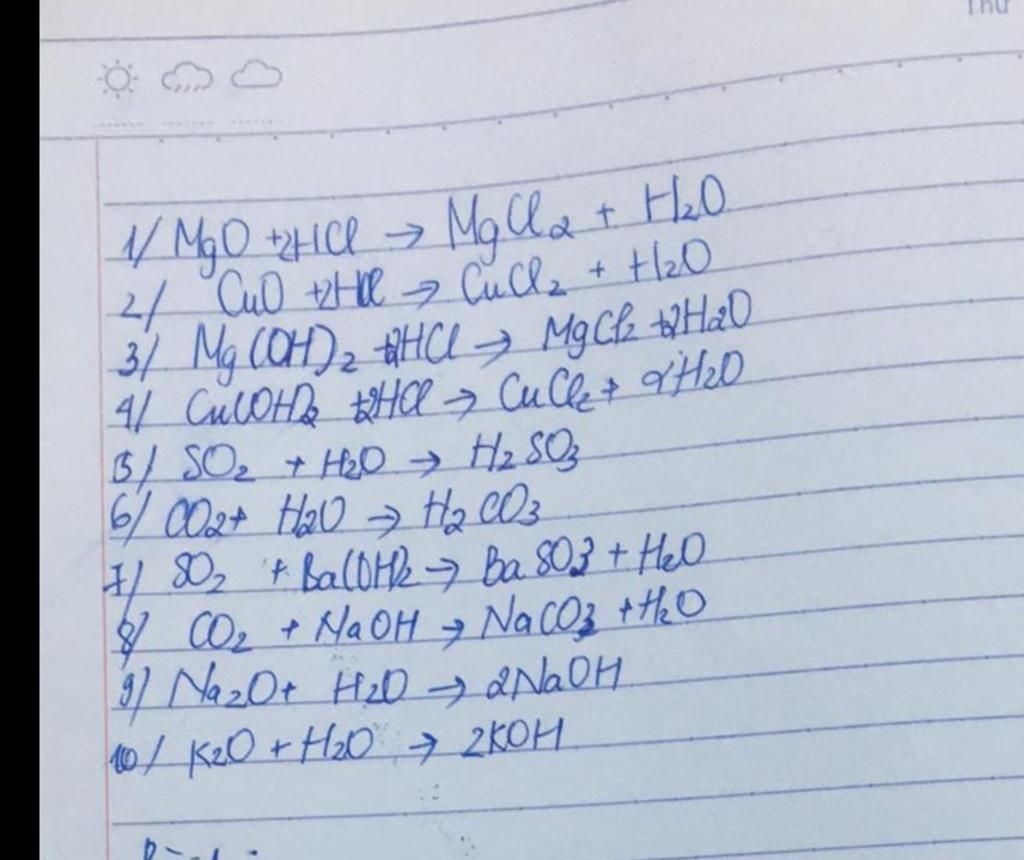 Thứ
1/ MgO +2HCl → MgCl2 + H2O
2/ CuO +2HCl → CuCl2 + H2O
3/ Mg(OH)2 +2HCl → MgCl2 +2H2O
4/ Cu(OH)2 +2HCl → CuCl2 + 2H2O
5/ SO2 + H2O → H2SO3
6/ CO2 + H2O → H2CO3
7/ SO2 + Ba(OH)2 → BaSO3 + H2O
8/ CO2 + NaOH → NaCO3 + H2O
9/ Na2O + H2O → 2NaOH
10/ K2O + H2O → 2KOH